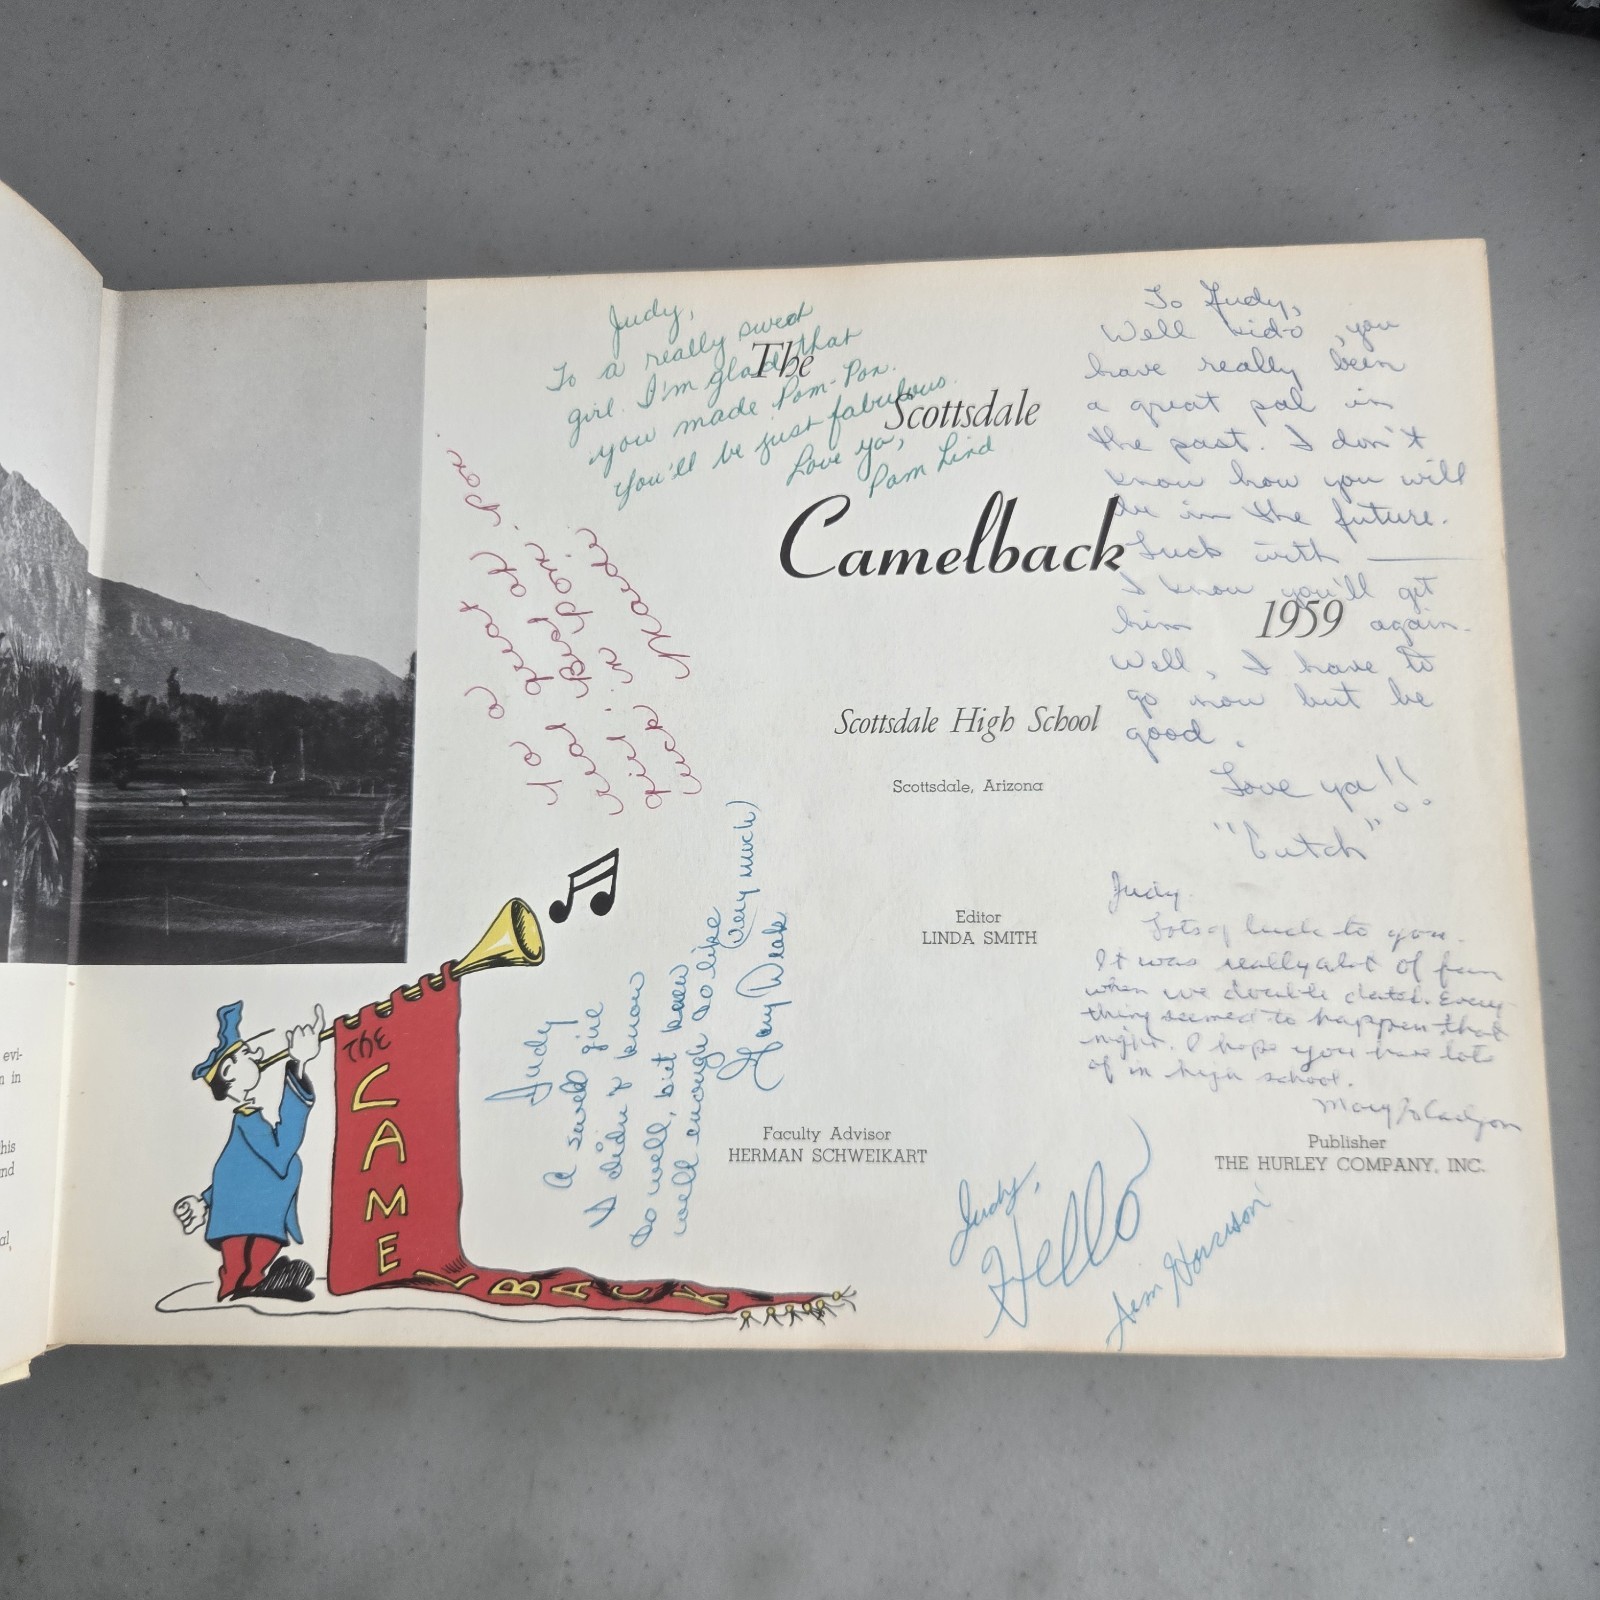 evi-
n in
his
nd
al,
Judy,
To a really sweet
girl. I'm glad that
you made Pom-Pon.
You'll be just fabulous.
Love ya,
Pam Lind
The
Scottsdale
Camelback
1959
Scottsdale High School
Scottsdale, Arizona
Editor
LINDA SMITH
Faculty Advisor
HERMAN SCHWEIKART
Publisher
THE HURLEY COMPANY, INC.
To Judy,
Well kido, you
have really been
a great pal in
the past. I don't
know how you will
be in the future.
Luck with ———
I know you'll get
him again.
Well, I have to
go now but be
good.
Love ya!!
"Butch"
Judy,
Lots of luck to you.
It was really alot of fun
when we double dated. Every
thing seemed to happen that
night. I hope you have lots
of in high school.
Mary
To a great
real
girl.
luck
Judy
A swell girl
I didn't know
to well, but knew
well enough to like
(very much)
Judy,
Hello
Jim Harrison
THE
CAMELBACK